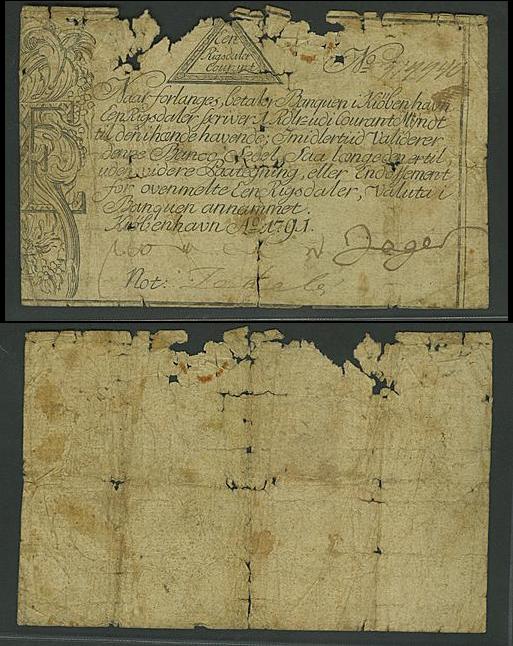 Een
Rigsdaler
Courant
No
Naar forlanges, betaler Banquen i Kiøbenhavn
Een Rigsdaler skriver 1 Rdlr. udi Courant Myndt
til den ihænde havende; Imidlertid Validerer
denne Banco-Zedel, saa længe den er til,
uden videre Paategning, eller Endossement
for ovenmelte Een Rigsdaler, Valuta i
Banquen annammet.
Kiøbenhavn Ao. 1791.
Jeger
Not: